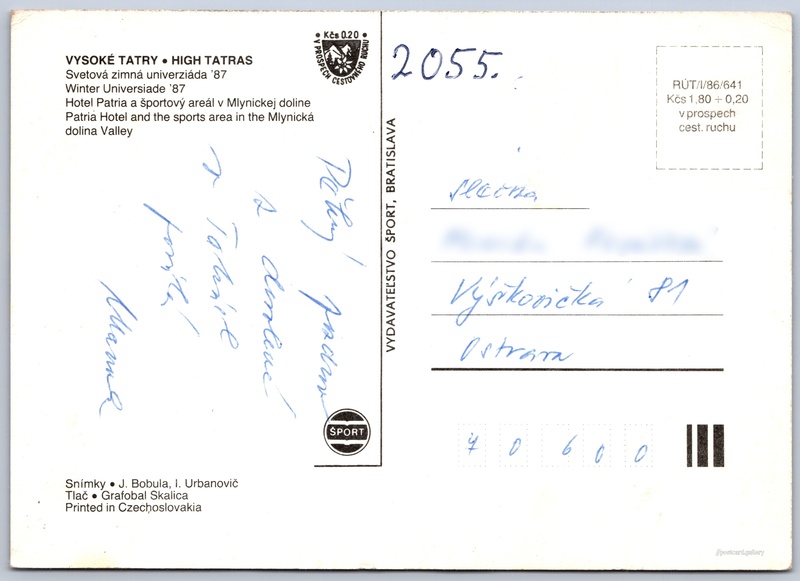 VYSOKÉ TATRY • HIGH TATRAS
Svetová zimná univerziáda '87
Winter Universiade '87
Hotel Patria a športový areál v Mlynickej doline
Patria Hotel and the sports area in the Mlynická
dolina Valley
• Kčs 0.20 •
V PROSPECH CESTOVNÉHO RUCHU
2055.
RÚT/I/86/641
Kčs 1,80 + 0,20
v prospech
cest. ruchu
Pěkný pozdrav
z dovolené
v Tatrách
posílá
VYDAVATEĽSTVO ŠPORT, BRATISLAVA
slečna
Výškovická 81
Ostrava
70600
ŠPORT
Snímky • J. Bobula, I. Urbanovič
Tlač • Grafobal Skalica
Printed in Czechoslovakia